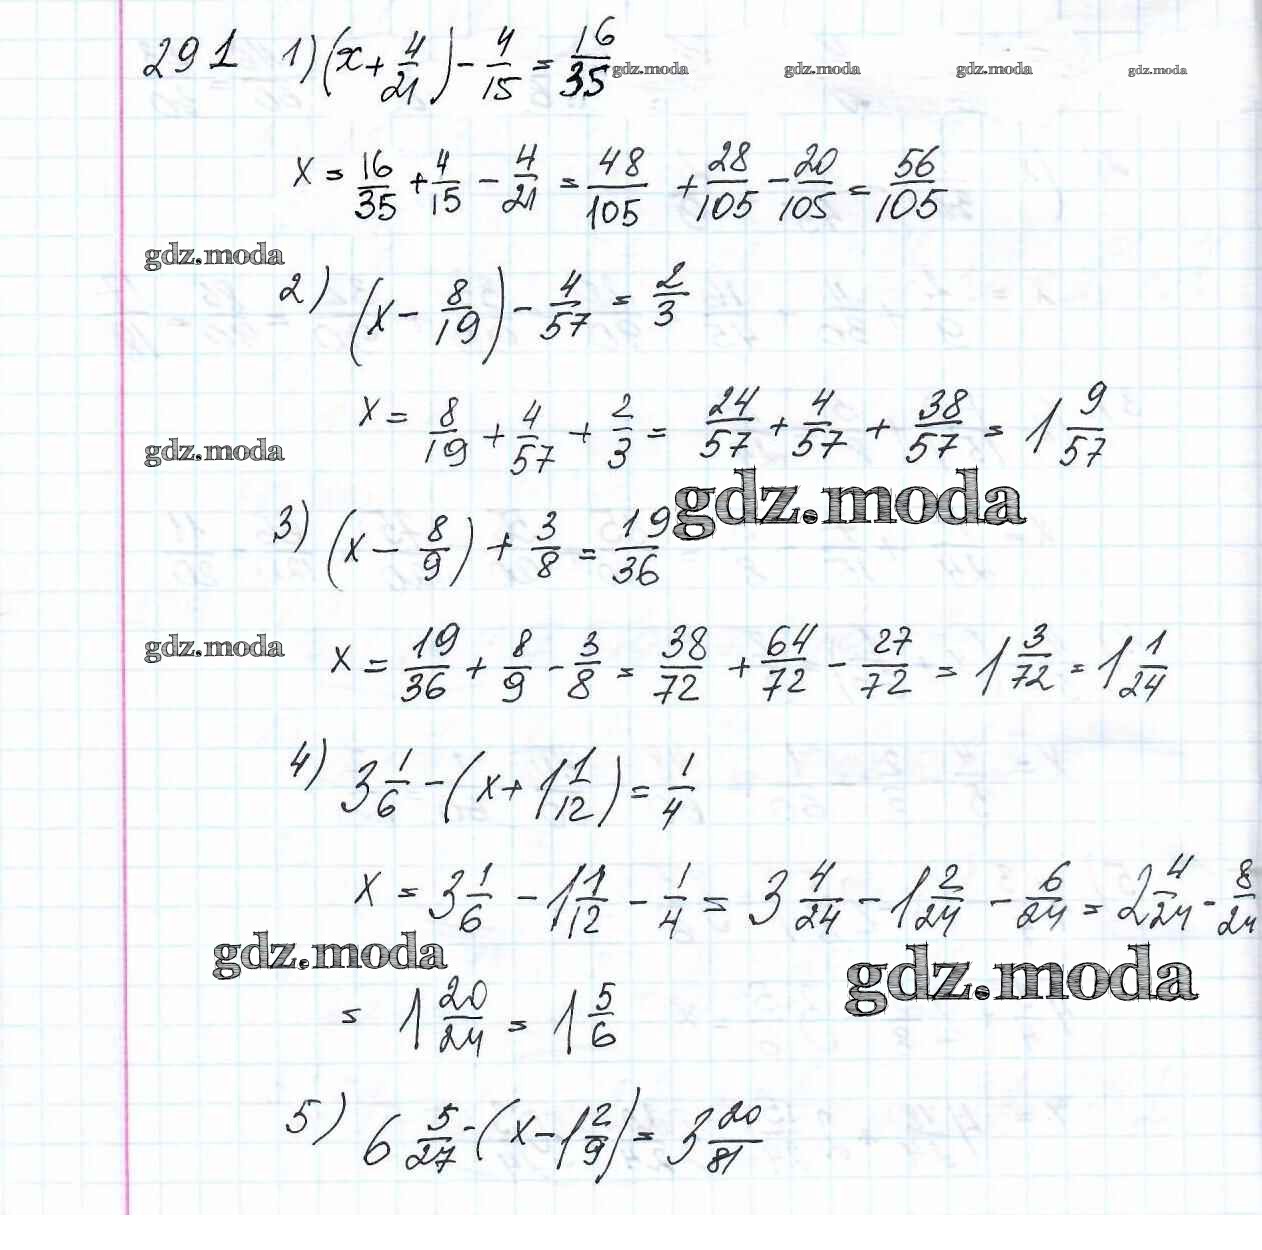 291 1) (x + 4/21) - 4/15 = 16/35 gdz.moda gdz.moda gdz.moda gdz.moda
x = 16/35 + 4/15 - 4/21 = 48/105 + 28/105 - 20/105 = 56/105
gdz.moda
2) (x - 8/19) - 4/57 = 2/3
x = 8/19 + 4/57 + 2/3 = 24/57 + 4/57 + 38/57 = 1 9/57
gdz.moda
gdz.moda
3) (x - 8/9) + 3/8 = 19/36
gdz.moda
x = 19/36 + 8/9 - 3/8 = 38/72 + 64/72 - 27/72 = 1 3/72 = 1 1/24
4) 3 1/6 - (x + 1 1/12) = 1/4
x = 3 1/6 - 1 1/12 - 1/4 = 3 4/24 - 1 2/24 - 6/24 = 2 4/24 - 8/24
gdz.moda gdz.moda
= 1 20/24 = 1 5/6
5) 6 5/27 - (x - 1 2/9) = 3 20/81